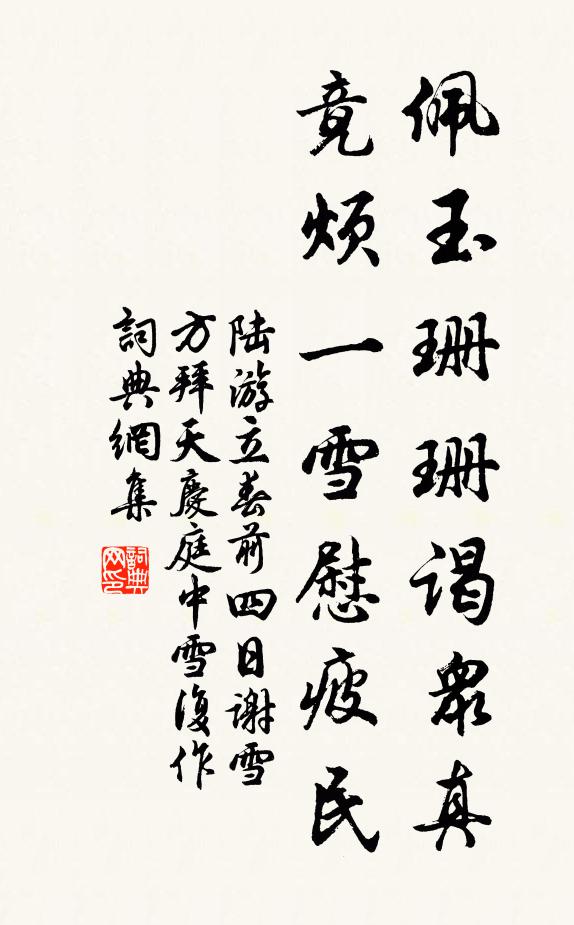 佩玉珊珊谒众真
竟烦一雪慰疲民
陆游立春前四日谢雪
方拜天庆庭中雪复作
词典网集
词典网印